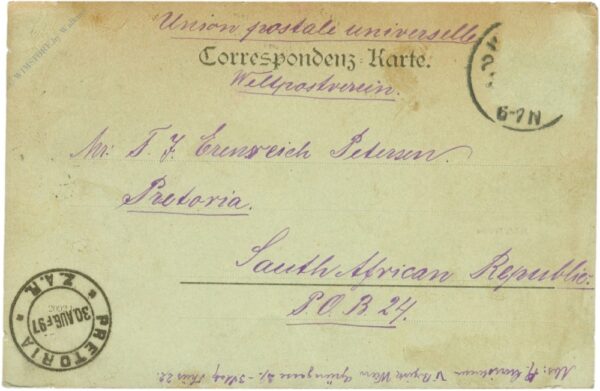 Union postale universelle
Correspondenz-Karte.
Weltpostverein.
6-7N
Mr. T. J. Erenreich Petersen.
Pretoria.
South African Republic.
P.O.B 24.
PRETORIA
Z.A.R.
30.AUG.97
Wien